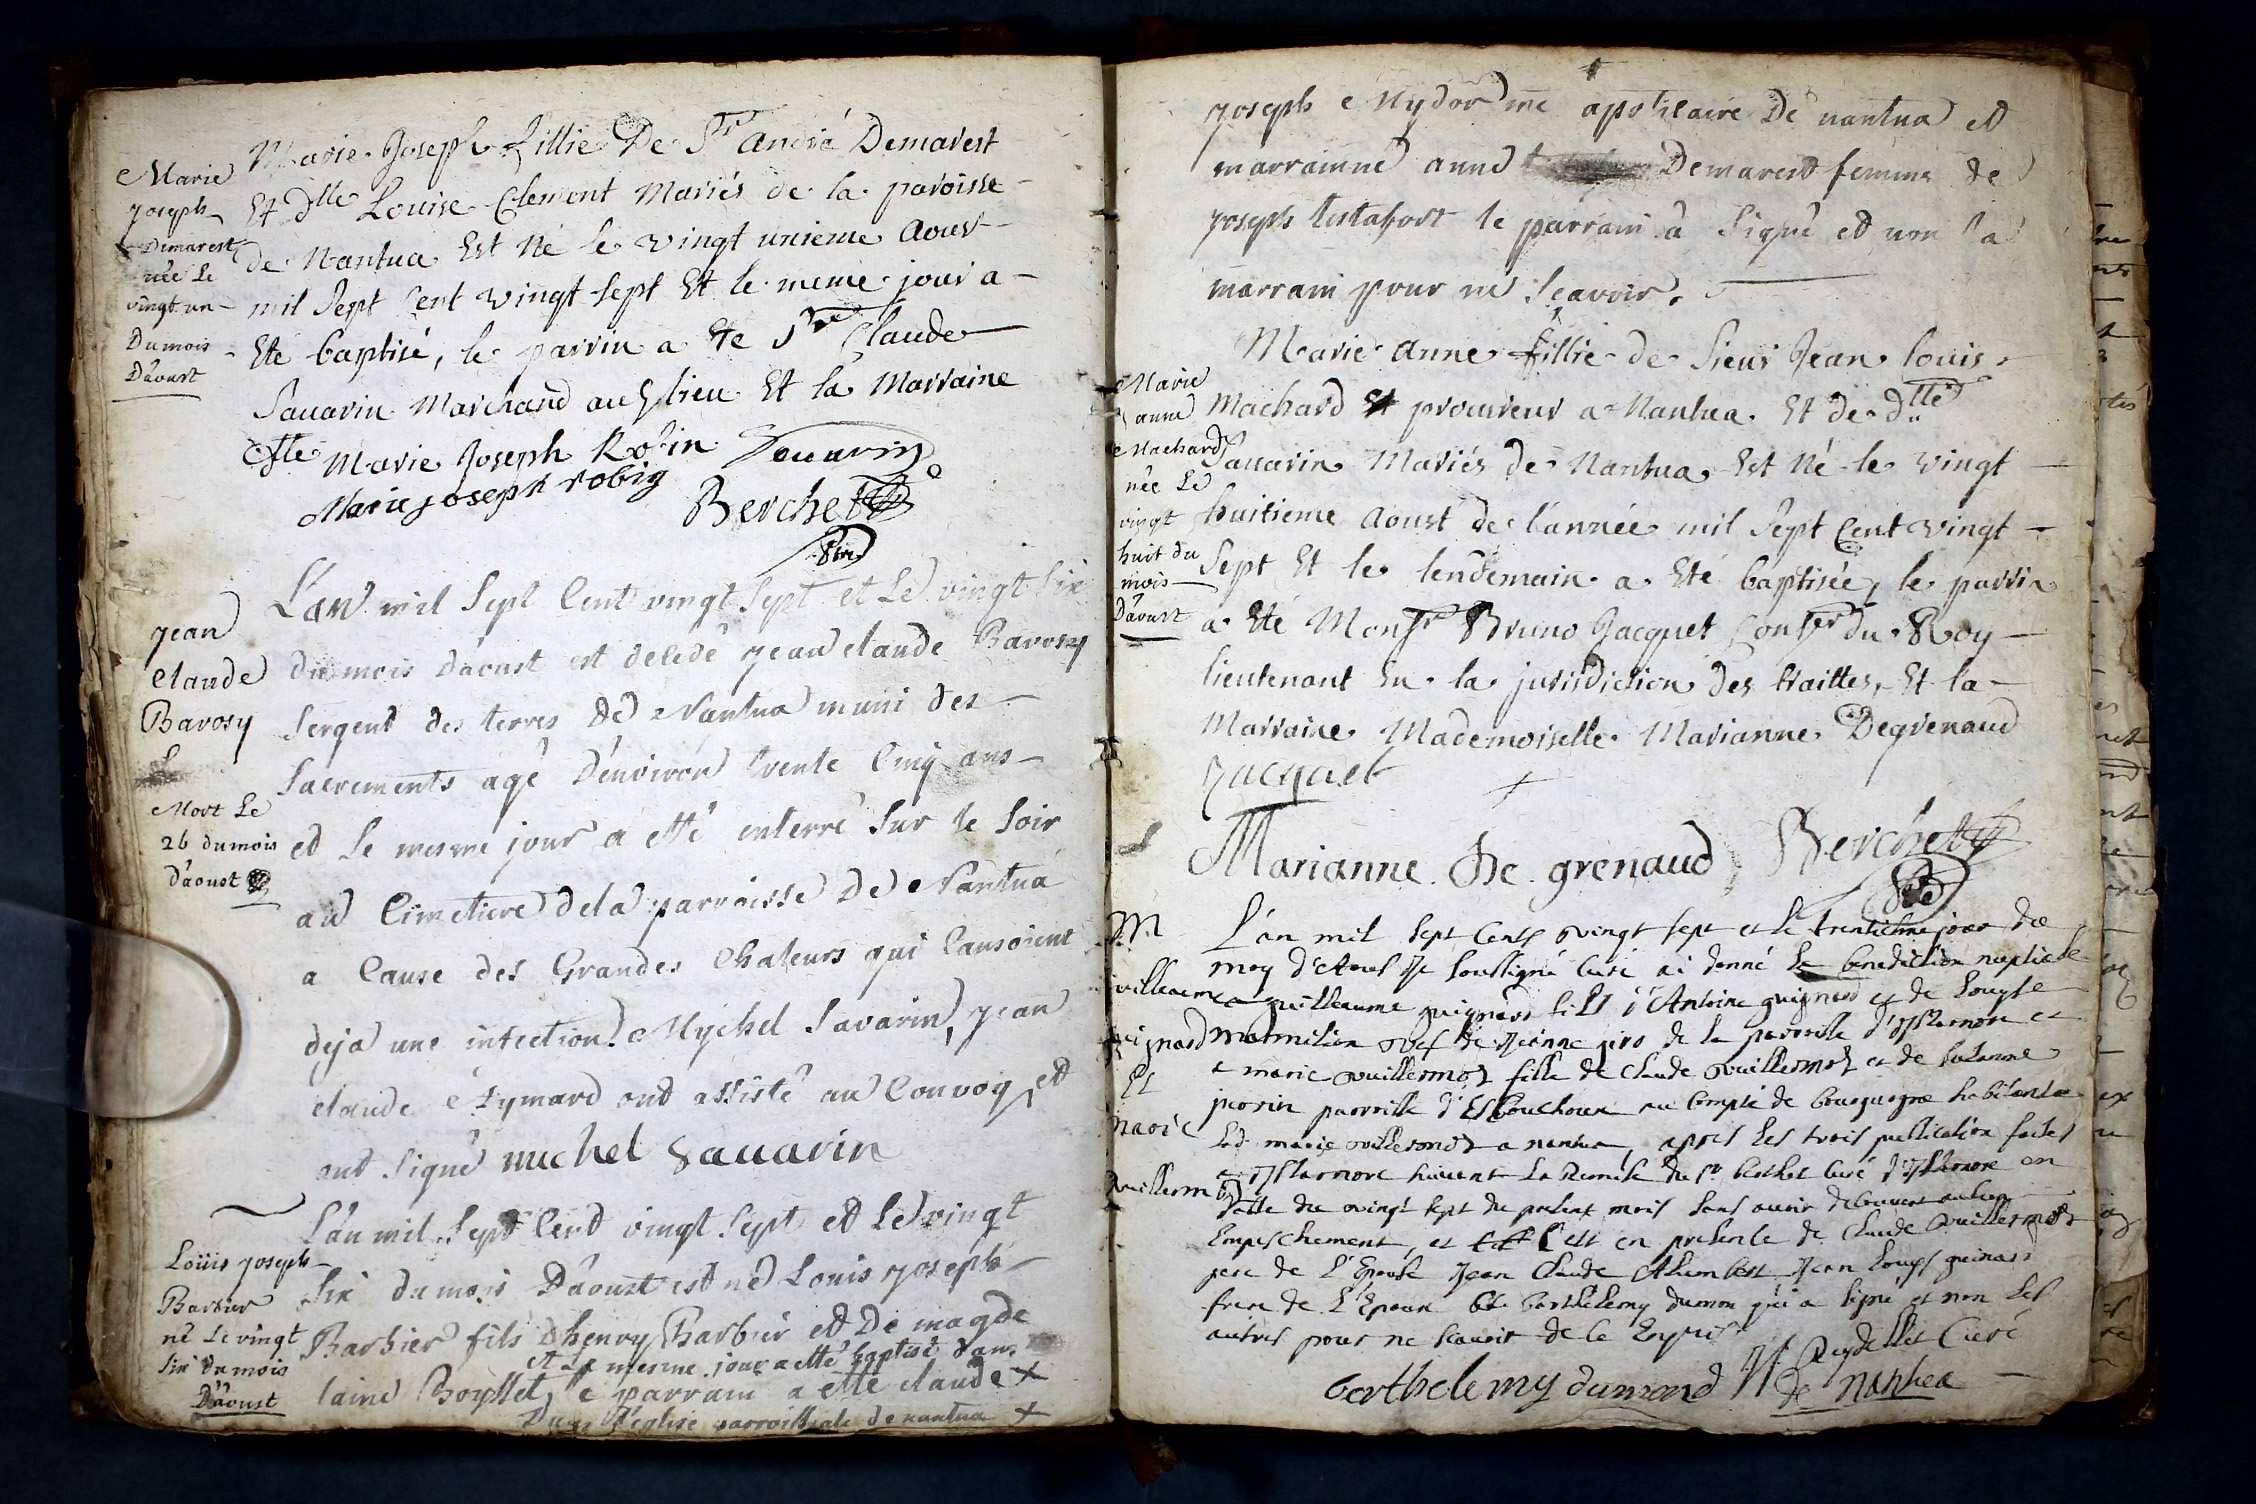 Marie
joseph
Demarest
née Le
vingt un
Du mois
D'aoust
Marie Joseph fillie De Sr André Demarest
Et Dlle Louise Clement Mariés de la paroisse
de Nantua Est Né le vingt unieme Aoust
mil Sept Cent vingt sept Et le meme jour a
Eté baptisé, le parrin a Eté Sr Claude
Sauarin Marchand au lieu Et la Marraine
Marie Joseph Robin Sauarin
Marie joseph robin
Berchet
Jean
Claude
Bavosy
Mort Le
26 du mois
D'aoust
L'an mil Sept Cent vingt Sept et Le vingt Six
du mois d'aoust est decedé jean claude Bavosy
Sergent des terres De Nantua muni des
Sacrements agé D'environ trente Cinq ans
et Le mesme jour a etté enterré Sur le Soir
au Cimetiere de la parroisse De Nantua
a Cause des Grandes Chaleurs qui Causoient
deja une infection. Mychel Savarin, jean
claude Eymard ont assisté au Convoy et
ont Signé michel Sauarin
Loüis joseph
Barbier
né Le vingt
Six du mois
D'aoust
L'an mil Sept Cent vingt Sept et Le vingt
Six du mois D'aoust est né Louis joseph
Barbier fils D henry Barbier et De magde
et Le mesme jour a etté baptisé dans
laine le parrain a etté claude +
Dans l'eglise parroissiale de nantua +
joseph Mydor me apoticaire De nantua et
marrainne anne Demarest femme de
joseph testafort le parrain a Signé et non la
marrain pour ne Scavoir.
Marie
anne
Machard
née Le
vingt
huit du
mois
D'aoust
Marie Anne fillie de Sieur Jean louis
Machard procureur a Nantua Et de Dlle
Sauarin Mariés de Nantua Est Né le vingt
huitieme Aoust de l'année mil Sept Cent vingt
Sept Et le lendemain a Eté baptisée, le parrin
a Eté Monsr Bruno Jacquet Conser du Roy
lieutenant En la jurisdiction des traittes, Et la
Marraine Mademoiselle Marianne Degrenaud
Jacquet
Marianne De grenaud Berchet
M
uilleaume
guignard
Et
marie
vuillermoz
L'an mil sept Cents vingt sept et le trentiesme jour du
moy d'Aout je soussigné Curé ai donné la benediction nuptiale
a guilleaume guignard fils d'Antoine guignard et de Louyse
Marmilion vef de Jeanne giro de la parroisse d'ysernore et
a marie vuillermoz fille de Claude vuillermoz et de Susanne
perrin parroisse d'Esbouchoux au Compté de bourgogne habitante
lad. marie vuillermoz a nantua, apres les trois publication faites
a ysernore suivant la Remise du Sr berthet Curé d'ysernore en
datte du vingt sept du present mois sans avoir decouvert aucun
Empeschement, et C'est en presence de Claude vuillermoz
pere de l'Epouse Jean Claude Jean Louys guinard
frere de L'Epoux Et barthelemy dumon qui a signé et non les
autres pour ne scavoir de ce Enquis
berthelemy dumond Reydellet Curé
de Nantua